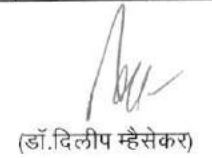 (डॉ.दिलीप म्हैसेकर)